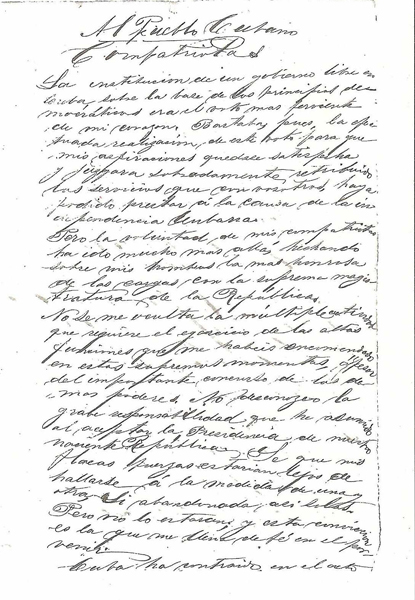 Al Pueblo Cubano
Compatriotas
La institucion de un gobierno libre en
Cuba sobre la base de los principios de
mocráticos era el voto mas ferviente
de mi corazon. Bastaba pues, la efec
tuada realizacion, de este voto para que
mis aspiraciones quedasen satisfecha
y juzgara sobradamente retribuido
los servicios que con vosotros haya
podido prestar á la causa de la in
dependencia Cubana.
Pero la voluntad, de mis compatriotas
ha ido mucho mas allá, hechando
sobre mis hombros la mas honrosa
de las cargas con la suprema magis
tratura, de la República.
No se me oculta la multiple
que requiere el ejercicio de las altas
funciones que me habeis encomendado
en estos supremos momentos,
del importante, concurso de los de
mas poderes. No desconozco la
grabe responsabilidad, que he asumido
al, aceptar la Presidencia, de nuestra
naciente República, Se que mis
flacas fuerzas estarian lejos de
hallarse á la medida de una y
otra, Si abandonada, así solas.
Pero no lo estarán, y esta conviccion
es la que me llena de fé en el por
venir.
Cuba ha contraido en el acto